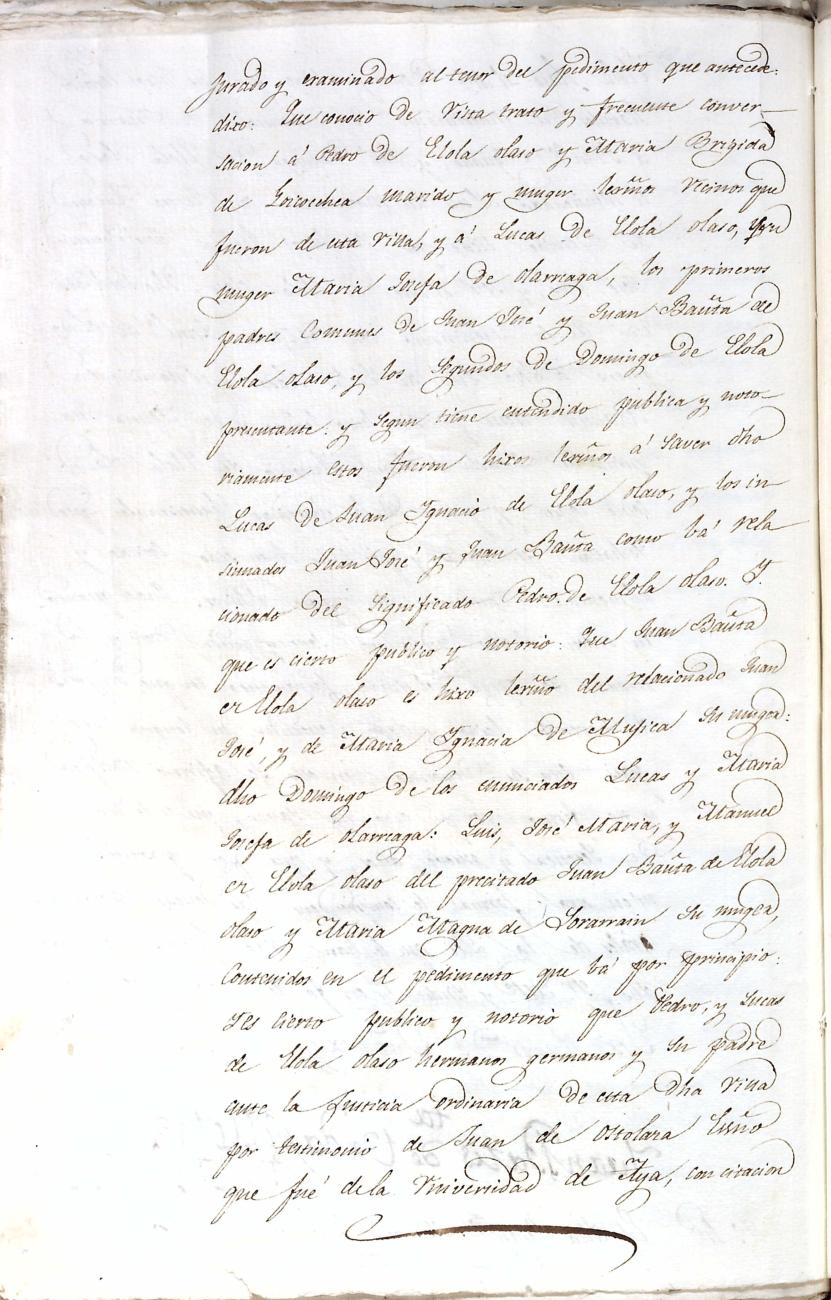 Jurado y examinado al tenor del pedimento que antecede:
dixo: Que conocio de vista trato y frecuente conver-
sacion á Pedro de Elola olaso y Maria Brigida
de Goicoechea marido y muger lexmos vecinos que
fueron de esta villa, y á Lucas de Elola olaso, y su
muger Maria Josefa de olarreaga, los primeros
padres comunes de Juan José y Juan Bauta de
Elola olaso, y los segundos de Domingo de Elola
presentante: y segun tiene entendido publica y noto-
riamente estos fueron hixos lexmos á saver dho
Lucas de Juan Ygnacio de Elola olaso, y los in-
sinuados Juan José y Juan Bauta como bá rela-
cionado del significado Pedro de Elola olaso. Y
que es cierto publico y notorio: que Juan Bauta
de Elola olaso es hixo lexmo del relacionado Juan
José, y de Maria Ygnacia de Mugica su muger:
dho Domingo de los enunciados Lucas y Maria
Josefa de olarreaga: Luis, José Maria, y Manuel
de Elola olaso del precitado Juan Bauta de Elola
olaso y Maria Magna de Sorarrain su muger,
contenidos en el pedimento que bá por principio:
Y es cierto publico y notorio que Pedro, y Lucas
de Elola olaso hermanos germanos y su padre
ante la Justicia ordinaria de esta dha villa
por testimonio de Juan de ostolaza Essno
que fué de la Universidad de Aya, con citacion